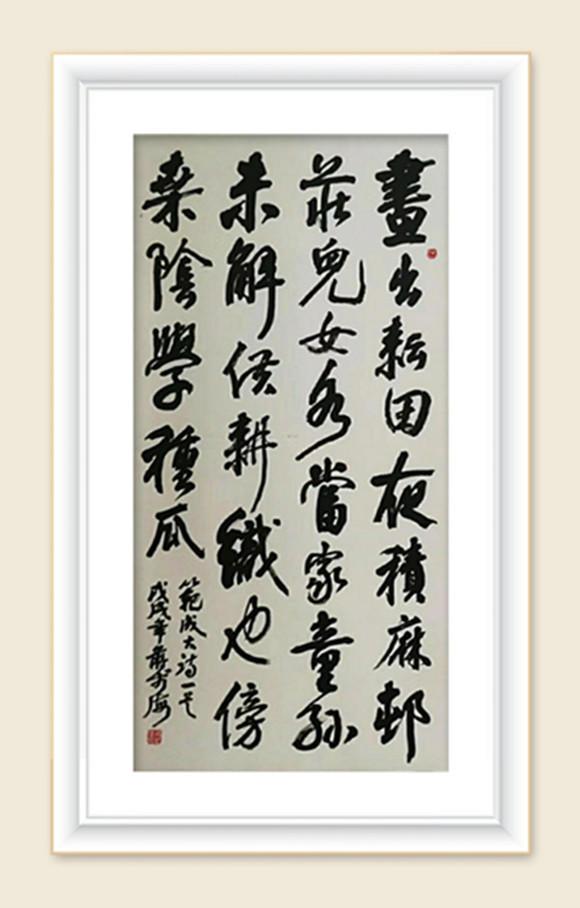 晝出耘田夜積麻邨
莊兒女各當家童孫
未解供耕織也傍
桒陰學種瓜
範成大诗一首
戊戌年